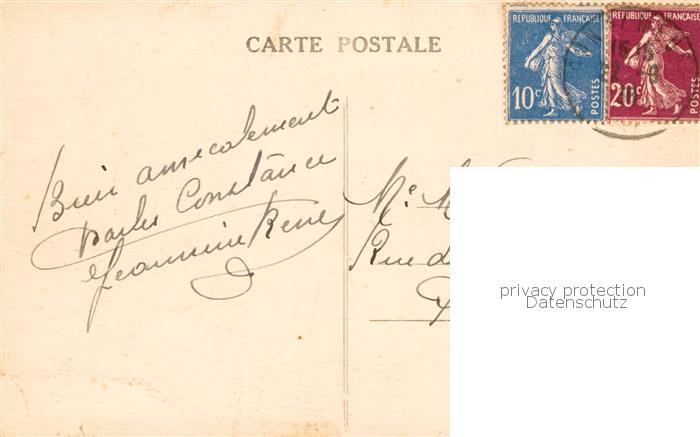 CARTE POSTALE
REPUBLIQUE FRANÇAISE
10c
POSTES
REPUBLIQUE FRANÇAISE
20c
POSTES
15
Bien amicalement
Constance
Jeannine René
Rue d
privacy protection
Datenschutz